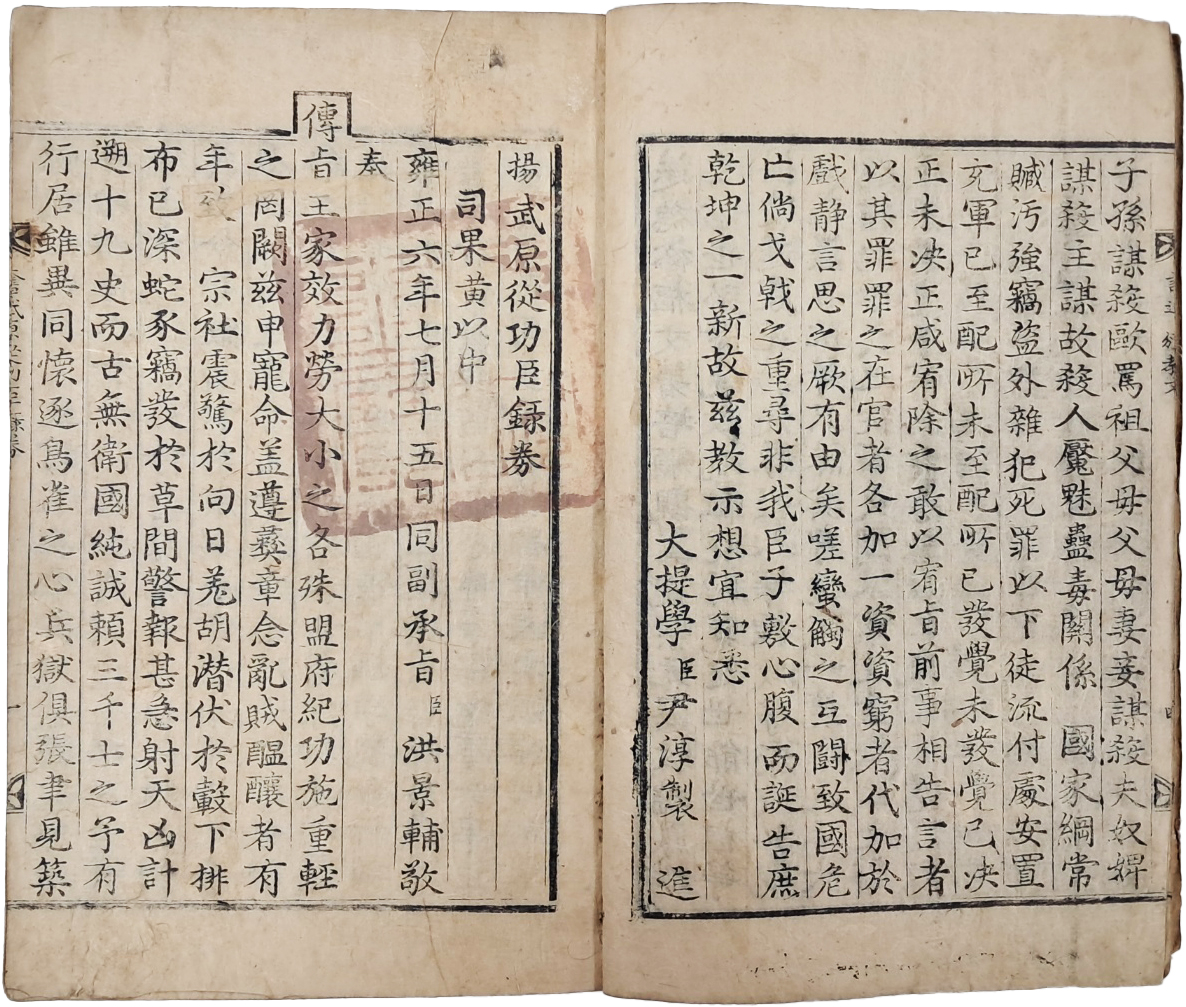 子孫謀殺歐罵祖父母父母妻妾謀殺夫奴婢
謀殺主謀故殺人魘魅蠱毒關係 國家綱常
贓污強竊盜外雜犯死罪以下徒流付處安置
充軍已至配所未至配所已發覺未發覺已決
正未决正咸宥除之敢以宥旨前事相告言者
以其罪罪之在官者各加一資資窮者代加於
戲靜言思之厥有由矣嗟蠻觸之互鬪致國危
亡倘戈戟之重尋非我臣子敷心腹而誕告庶
乾坤之一新故茲教示想宜知悉
大提學臣尹淳製 進
揚武原從功臣錄券
司果黃以中
雍正六年七月十五日同副承旨臣洪景輔敬
奉
傳旨王家效力勞大小之各殊盟府紀功施重輕
之罔闕茲申寵命盖遵彝章念亂賊醞釀者有
年致 宗社震驚於向日羌胡潛伏於轂下排
布已深蛇豕竊發於草間警報甚急射天凶計
遡十九史而古無衛國純誠賴三千士之予有
行居雖異同懷逐鳥雀之心兵獄俱張聿見築